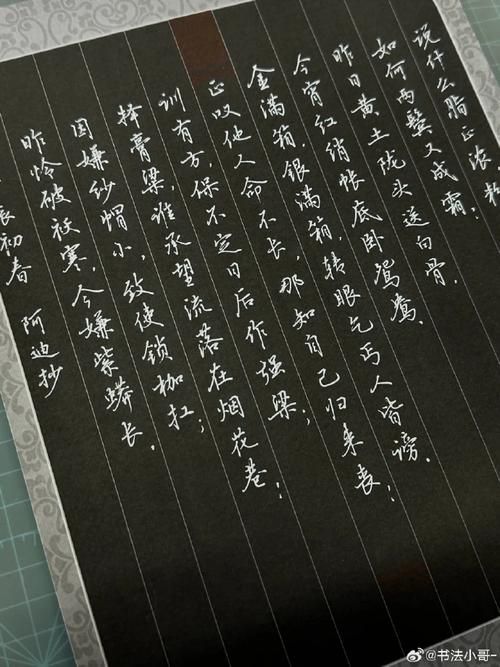 说什么脂正浓、粉
如何两鬓又成霜？
昨日黄土陇头送白骨，
今宵红绡帐底卧鸳鸯。
金满箱，银满箱，转眼乞丐人皆谤。
正叹他人命不长，那知自己归来丧；
训有方，保不定日后作强梁；
择膏粱，谁承望流落在烟花巷；
因嫌纱帽小，致使锁枷扛；
昨怜破袄寒，今嫌紫蟒长。
初春 阿迪抄
@书法小哥-